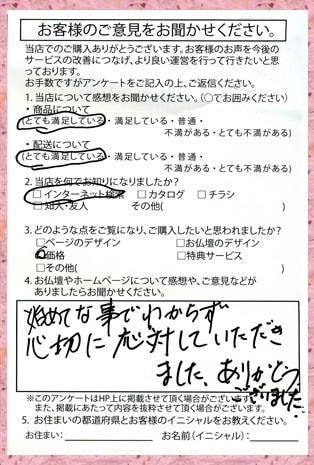 お客様のご意見をお聞かせください。
当店でのご購入ありがとうございます。お客様のお声を今後の
サービスの改善につなげ、より良い運営を行って行きたいと思
っております。
お手数ですがアンケートをご記入の上、ご返信ください。
1. 当店について感想をお聞かせください。(○でお囲みください)
・商品について
(とても満足している・満足している・普通・
不満がある・とても不満がある)
・配送について
(とても満足している・満足している・普通・
不満がある・とても不満がある)
2. 当店を何でお知りになりましたか?
□インターネット検索 □カタログ □チラシ
□知人・友人 その他( )
3. どのような点をご覧になり、ご購入したいと思われましたか?
□ページのデザイン □お仏壇のデザイン
□価格 □特典サービス
□その他( )
4. お仏壇やホームページについて感想や、ご意見などが
ありましたらお聞かせください。
始めてな事でわからず
心切に応対していただき
ました、ありがとう
ございました。
※このアンケートはHP上に掲載させて頂く場合がございます。
また、掲載にあたって内容を抜粋させて頂く場合がございます。
5. お住まいの都道府県とお客様のイニシャルをお教えください。
お住まい: お名前(イニシャル):